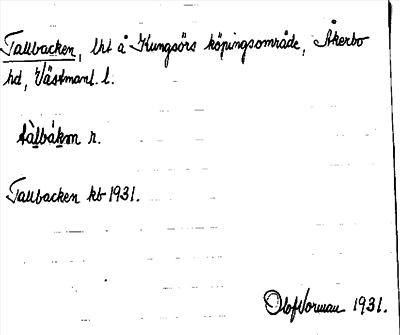 Tallbacken, lht å Kungsörs köpingsområde, Åkerbo
hd, Västmanl. l.
tàlbákən n.
Tallbacken kb 1931.
Olof Vorman 1931.